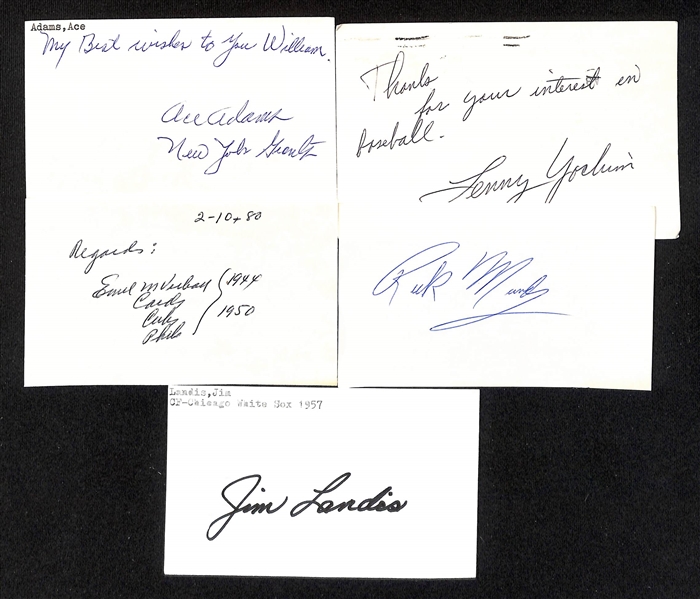 Adams,Ace
My Best wishes to You William.
Ace Adams
New York Giants
Thanks
for your interest in
baseball.
Lenny Yochim
2-10-80
Regards:
Emil M Verban
Cards
Cubs
Phils
1944
1950
Rick
Landis,Jim
CF-Chicago White Sox 1957
Jim Landis